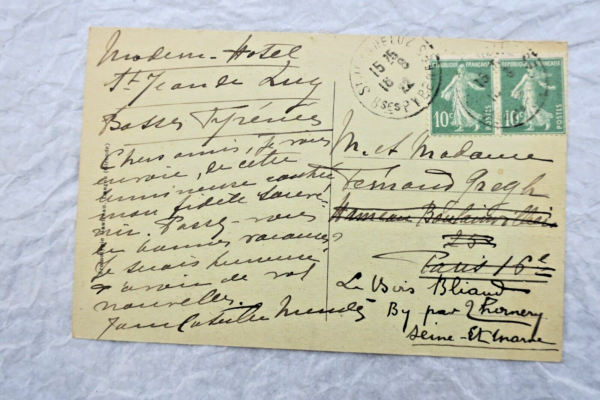 Modern-Hotel
St Jean de Luz
Basses Pyrénées
Chers amis, je vous
envoie, de cette
lumineuse contrée
mon fidèle souve-
nir. Passez-vous
de bonnes vacances?
Je serais heureuse
d'avoir de vos
nouvelles.
Jane Catulle Mendès
ST JEAN DE LUZ
15 25
16 - 8
22
BSES PYRENEES
REPUBLIQUE FRANÇAISE
10c
POSTES
REPUBLIQUE FRANÇAISE
10c
POSTES
M. et Madame
Fernand Gregh
Hameau Boulainvilliers
25
Paris 16e
Le Bois Bliaud
By par Thomery
Seine-Et-Marne